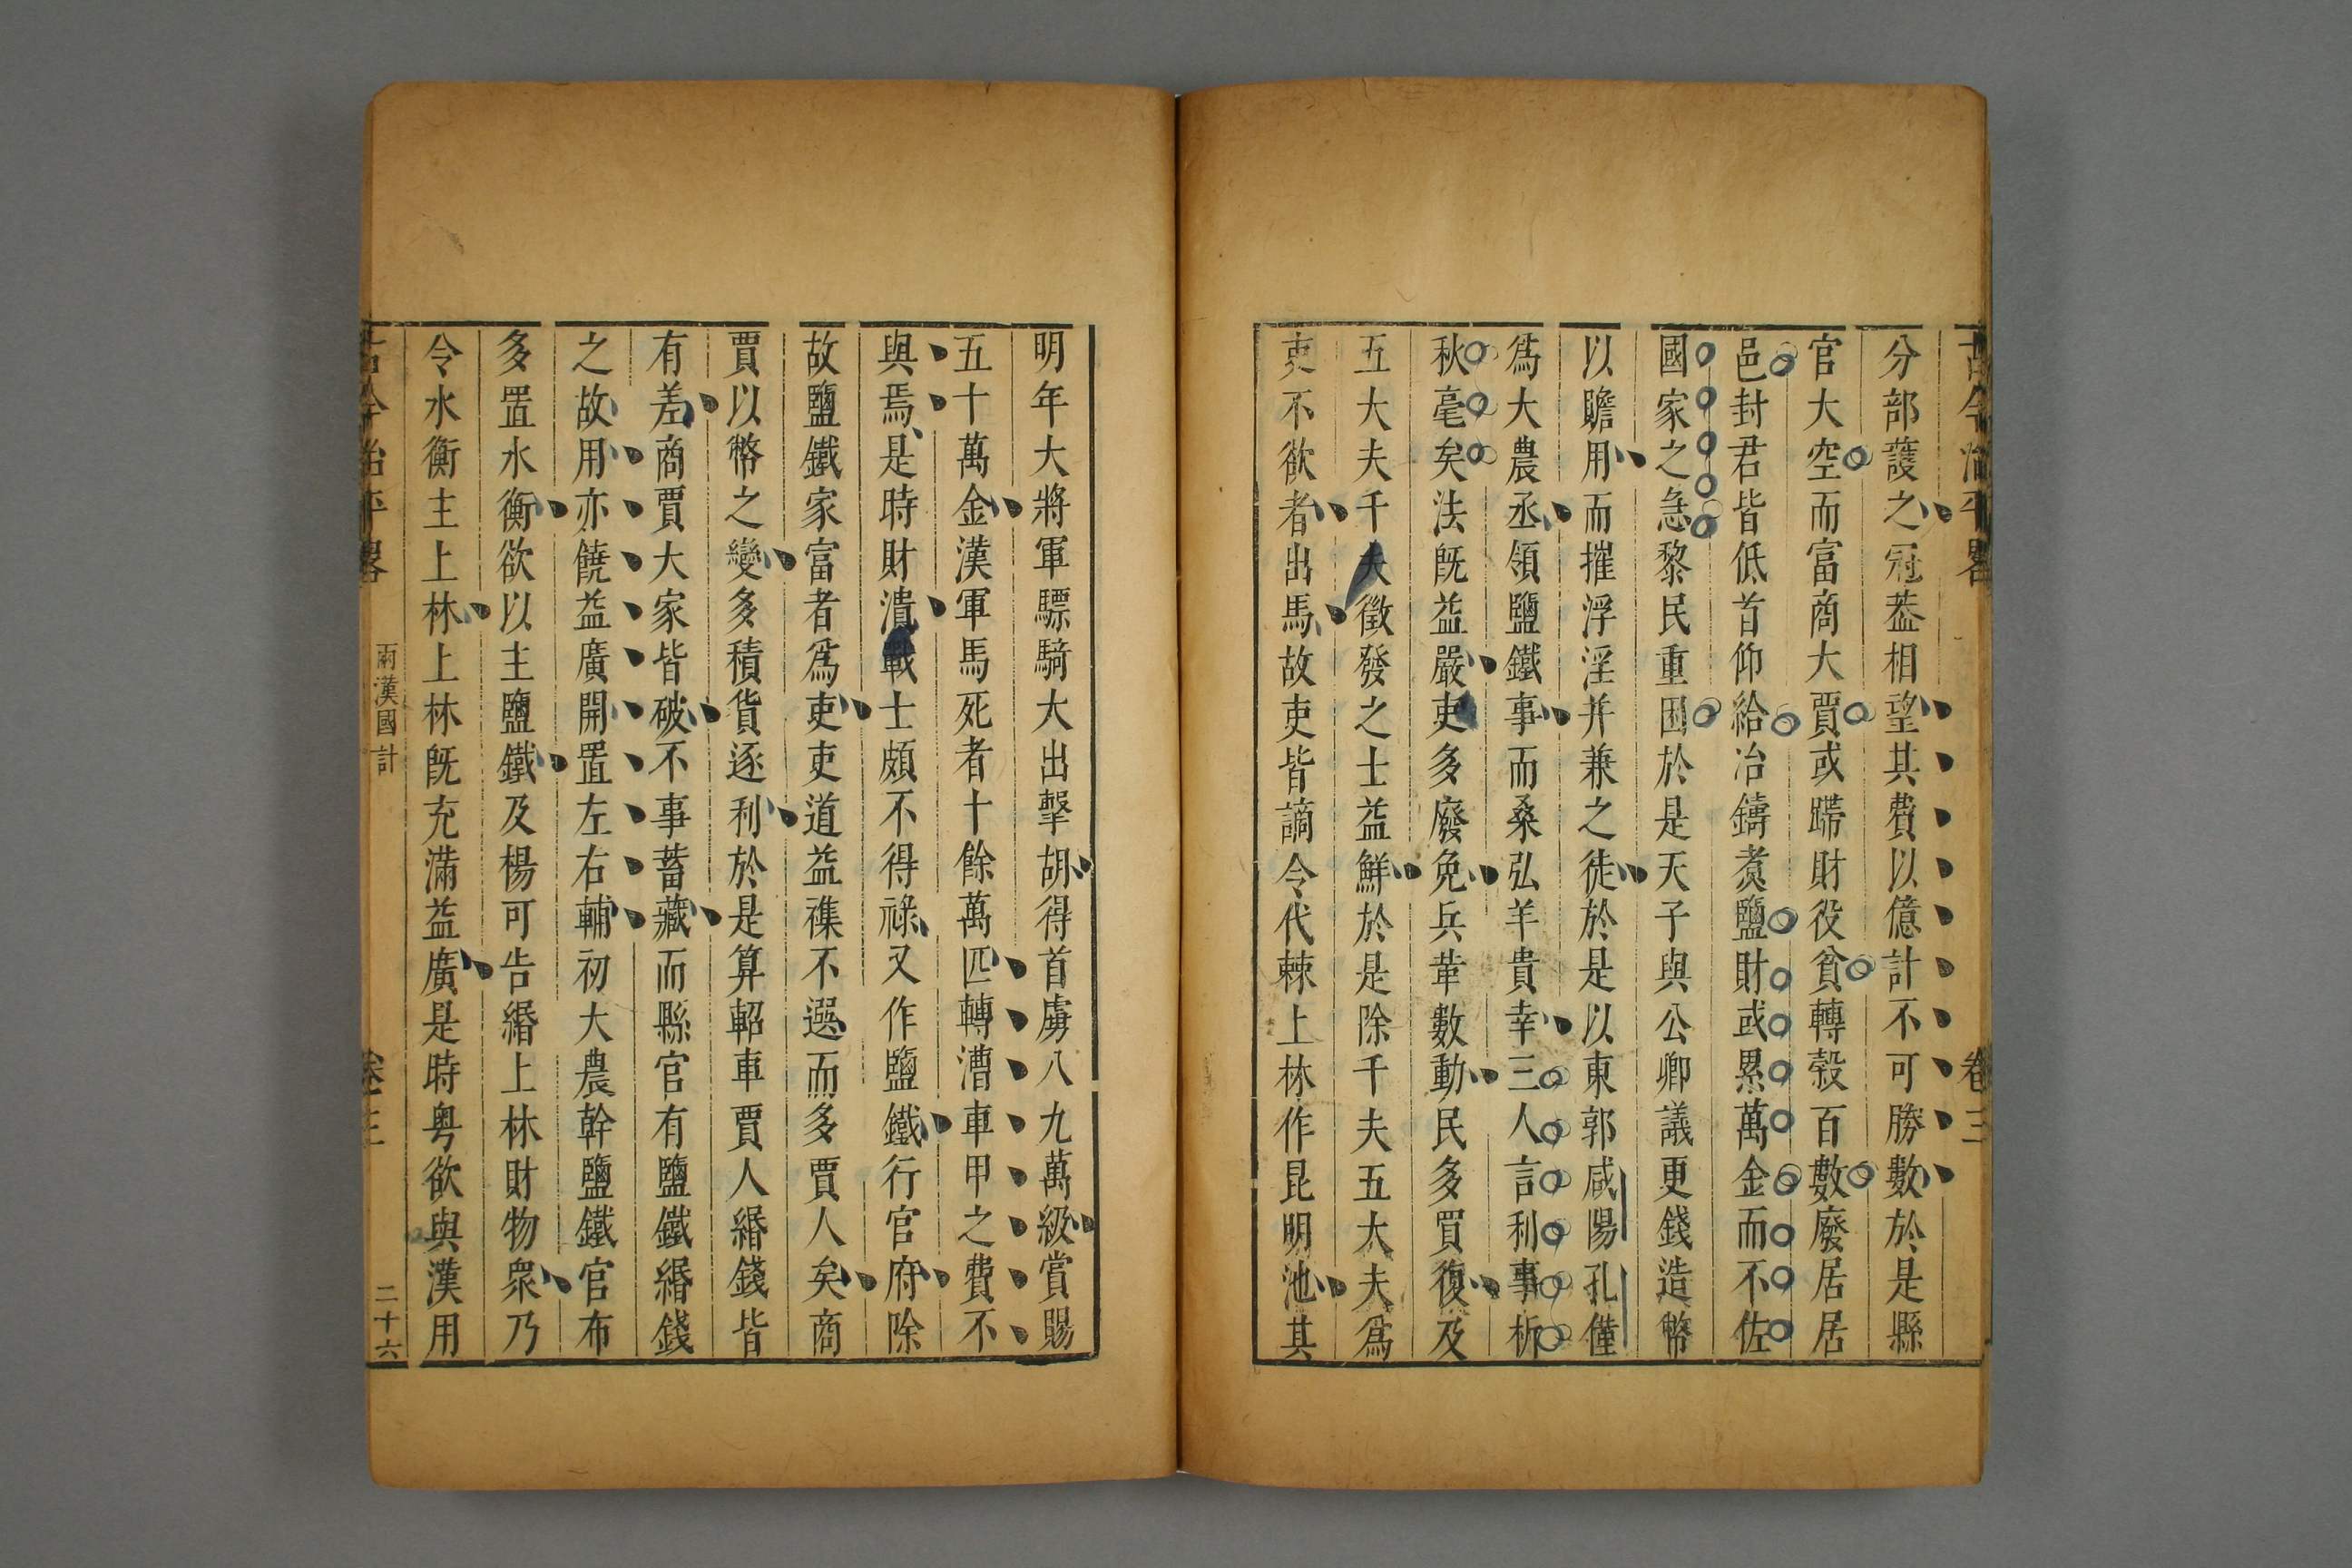 古今治平畧
卷三
分部護之冠葢相望其費以億計不可勝數於是縣
官大空而富商大賈或蹛財役貧轉轂百數廢居居
邑封君皆低首仰給冶鑄煑鹽財或累萬金而不佐
國家之急黎民重困於是天子與公卿議更錢造幣
以贍用而摧浮淫并兼之徒於是以東郭咸陽孔僅
爲大農丞領鹽鐵事而桑弘羊貴幸三人言利事析
秋毫矣法旣益嚴吏多廢免兵革數動民多買復及
五大夫千夫徵發之士益鮮於是除千夫五大夫爲
吏不欲者出馬故吏皆謫令代棘上林作昆明池其
明年大將軍驃騎大出擊胡得首虜八九萬級賞賜
五十萬金漢軍馬死者十餘萬匹轉漕車甲之費不
與焉是時財潰戰士頗不得祿又作鹽鐵行官府除
故鹽鐵家富者爲吏吏道益襍不選而多賈人矣商
賈以幣之變多積貨逐利於是算軺車賈人緡錢皆
有差商賈大家皆破不事蓄藏而縣官有鹽鐵緡錢
之故用亦饒益廣開置左右輔初大農幹鹽鐵官布
多置水衡欲以主鹽鐵及楊可告緡上林財物衆乃
令水衡主上林上林旣充滿益廣是時粤欲與漢用
古今治平畧
兩漢國計
卷之三
二十六